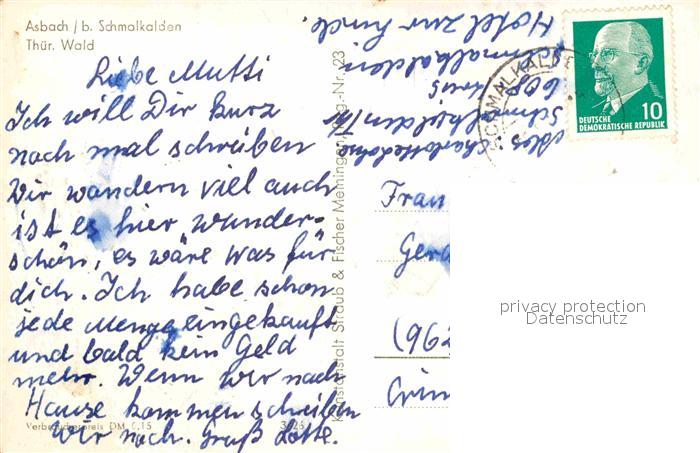 Asbach / b. Schmalkalden
Thür. Wald
Liebe Mutti
Ich will Dir kurz
noch mal schreiben
Wir wandern viel auch
ist es hier wunder-
schön, es wäre was für
dich. Ich habe schon
jede Menge eingekauft
und bald kein Geld
mehr. Wenn wir nach
Hause kommen schreiben
wir noch. Gruß Lotte.
Verbraucherpreis DM 0,15
Kunstanstalt Straub & Fischer Meiningen
Schmalkalden
Hotel zur
SCHMALKALDE
10
DEUTSCHE
DEMOKRATISCHE REPUBLIK
Frau
Ger
(962
Crim
privacy protection
Datenschutz